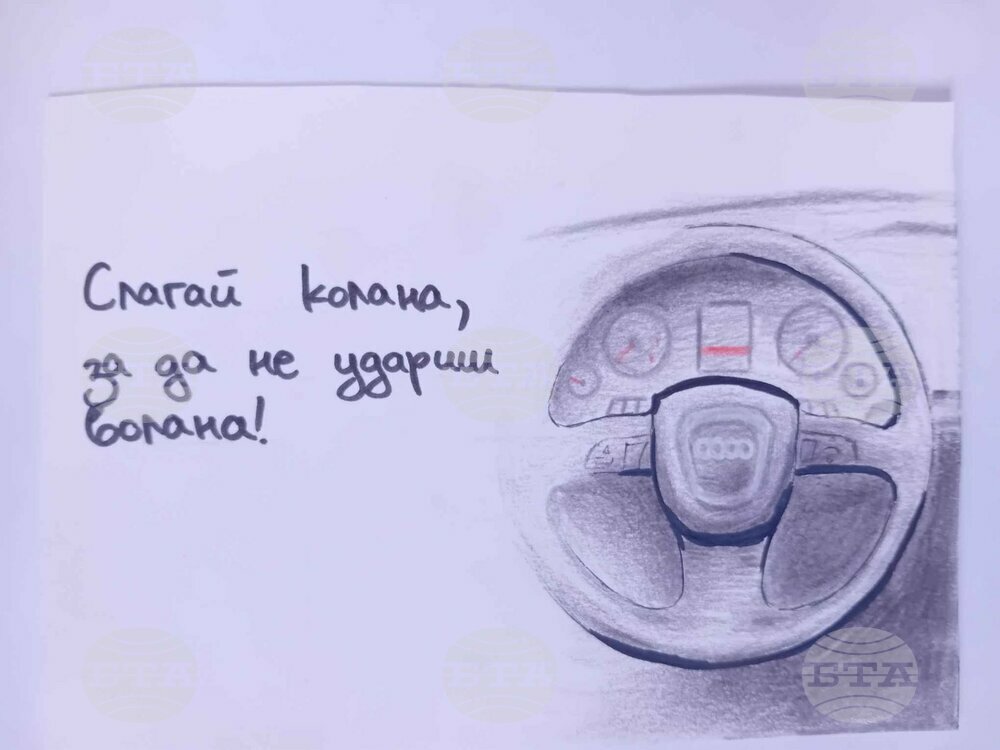 Слагай колана,
за да не удариш
волана!
БТА